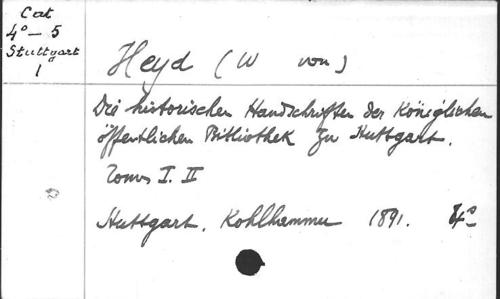 Cat
4° — 5
Stuttgart
1
Heyd (W von)
Die historischen Handschriften der Königlichen
öffentlichen Bibliothek zu Stuttgart.
Tomes I. II
Stuttgart. Kohlhammer 1891. 4°